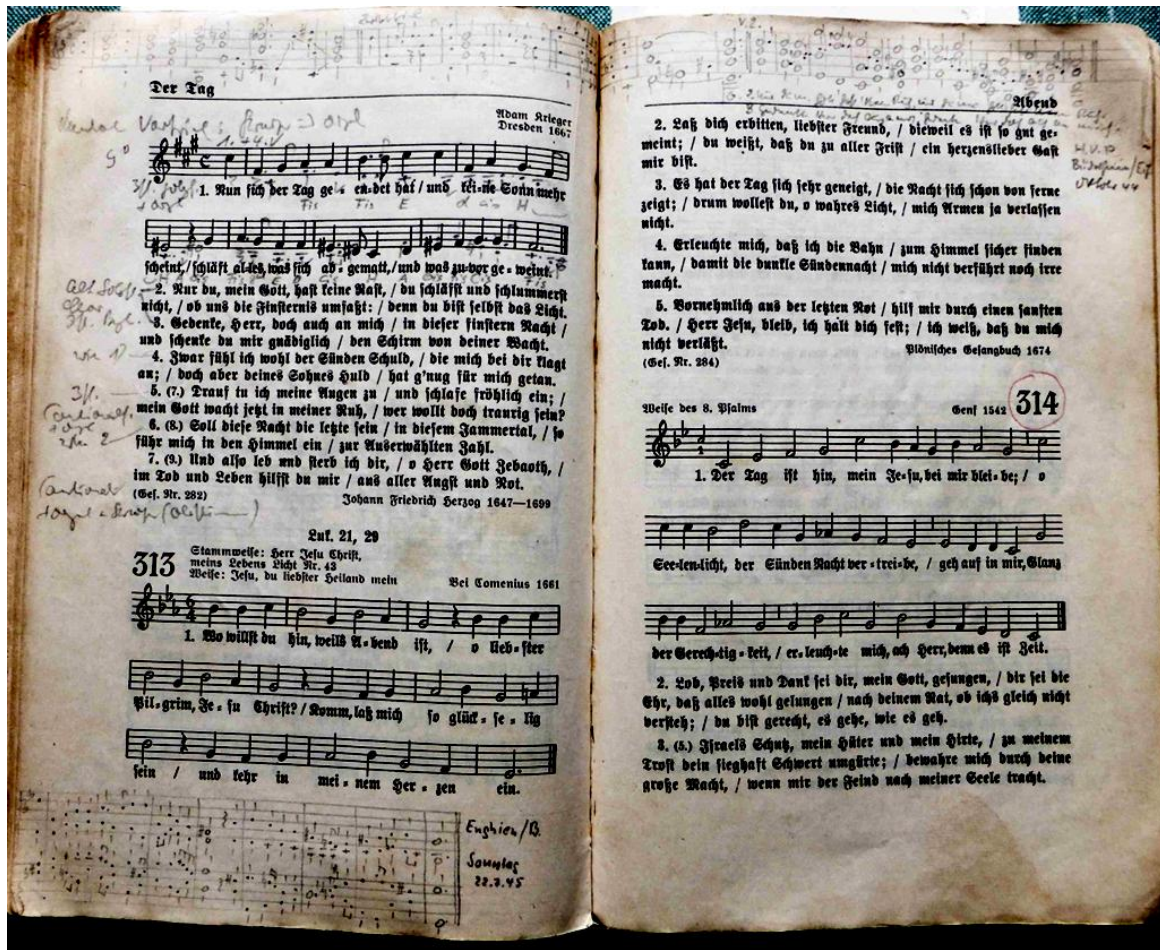 Der Tag
Adam Krieger
Dresden 1667
1. Nun sich der Tag ge- en-det hat / und kei-ne Sonn mehr
Fis Fis E H
scheint, / schläft al-les, was sich ab-gematt, / und was zu-vor ge-weint.
2. Nur du, mein Gott, hast keine Rast, / du schläfst und schlummerst
nicht, / ob uns die Finsternis umfaßt: / denn du bist selbst das Licht.
3. Gedenke, Herr, doch auch an mich / in dieser finstern Nacht /
und schenke du mir gnädiglich / den Schirm von deiner Wacht.
4. Zwar fühl ich wohl der Sünden Schuld, / die mich bei dir klagt
an; / doch aber deines Sohnes Huld / hat g'nug für mich getan.
5. (7.) Drauf tu ich meine Augen zu / und schlafe fröhlich ein; /
mein Gott wacht jetzt in meiner Ruh, / wer wollt doch traurig sein?
6. (8.) Soll diese Nacht die letzte sein / in diesem Jammertal, / so
führ mich in den Himmel ein / zur Auserwählten Zahl.
7. (9.) Und also leb und sterb ich dir, / o Herr Gott Zebaoth, /
im Tod und Leben hilfst du mir / aus aller Angst und Not.
(Ges. Nr. 282)
Johann Friedrich Herzog 1647—1699
Luk. 21, 29
313
Stammweise: Herr Jesu Christ,
meins Lebens Licht Nr. 43
Weise: Jesu, du liebster Heiland mein
Bei Comenius 1661
1. Wo willst du hin, weils A-bend ist, / o lieb-ster
Pil-grim, Je-su Christ? / Komm, laß mich so glück-se-lig
sein / und kehr in mei-nem Her-zen ein.
Enghien/B.
Sonntag
22.7.45
Abend
2. Laß dich erbitten, liebster Freund, / dieweil es ist so gut ge-
meint; / du weißt, daß du zu aller Frist / ein herzenslieber Gast
mir bist.
3. Es hat der Tag sich sehr geneigt, / die Nacht sich schon von ferne
zeigt; / drum wollest du, o wahres Licht, / mich Armen ja verlassen
nicht.
4. Erleuchte mich, daß ich die Bahn / zum Himmel sicher finden
kann, / damit die dunkle Sündennacht / mich nicht verführt noch irre
macht.
5. Vornehmlich aus der letzten Not / hilf mir durch einen sanften
Tod. / Herr Jesu, bleib, ich halt dich fest; / ich weiß, daß du mich
nicht verläßt.
Plönisches Gesangbuch 1674
(Ges. Nr. 284)
Weise des 8. Psalms
Genf 1542
314
1. Der Tag ist hin, mein Je-su, bei mir blei-be; / o
See-len-licht, der Sünden Nacht ver-trei-be, / geh auf in mir, Glanz
der Gerech-tig-keit, / er-leuch-te mich, ach Herr, denn es ist Zeit.
2. Lob, Preis und Dank sei dir, mein Gott, gesungen, / dir sei die
Ehr, daß alles wohl gelungen / nach deinem Rat, ob ichs gleich nicht
versteh; / du bist gerecht, es gehe, wie es geh.
3. (5.) Israels Schutz, mein Hüter und mein Hirte, / zu meinem
Trost dein sieghaft Schwert umgürte; / bewahre mich durch deine
große Macht, / wenn mir der Feind nach meiner Seele tracht.